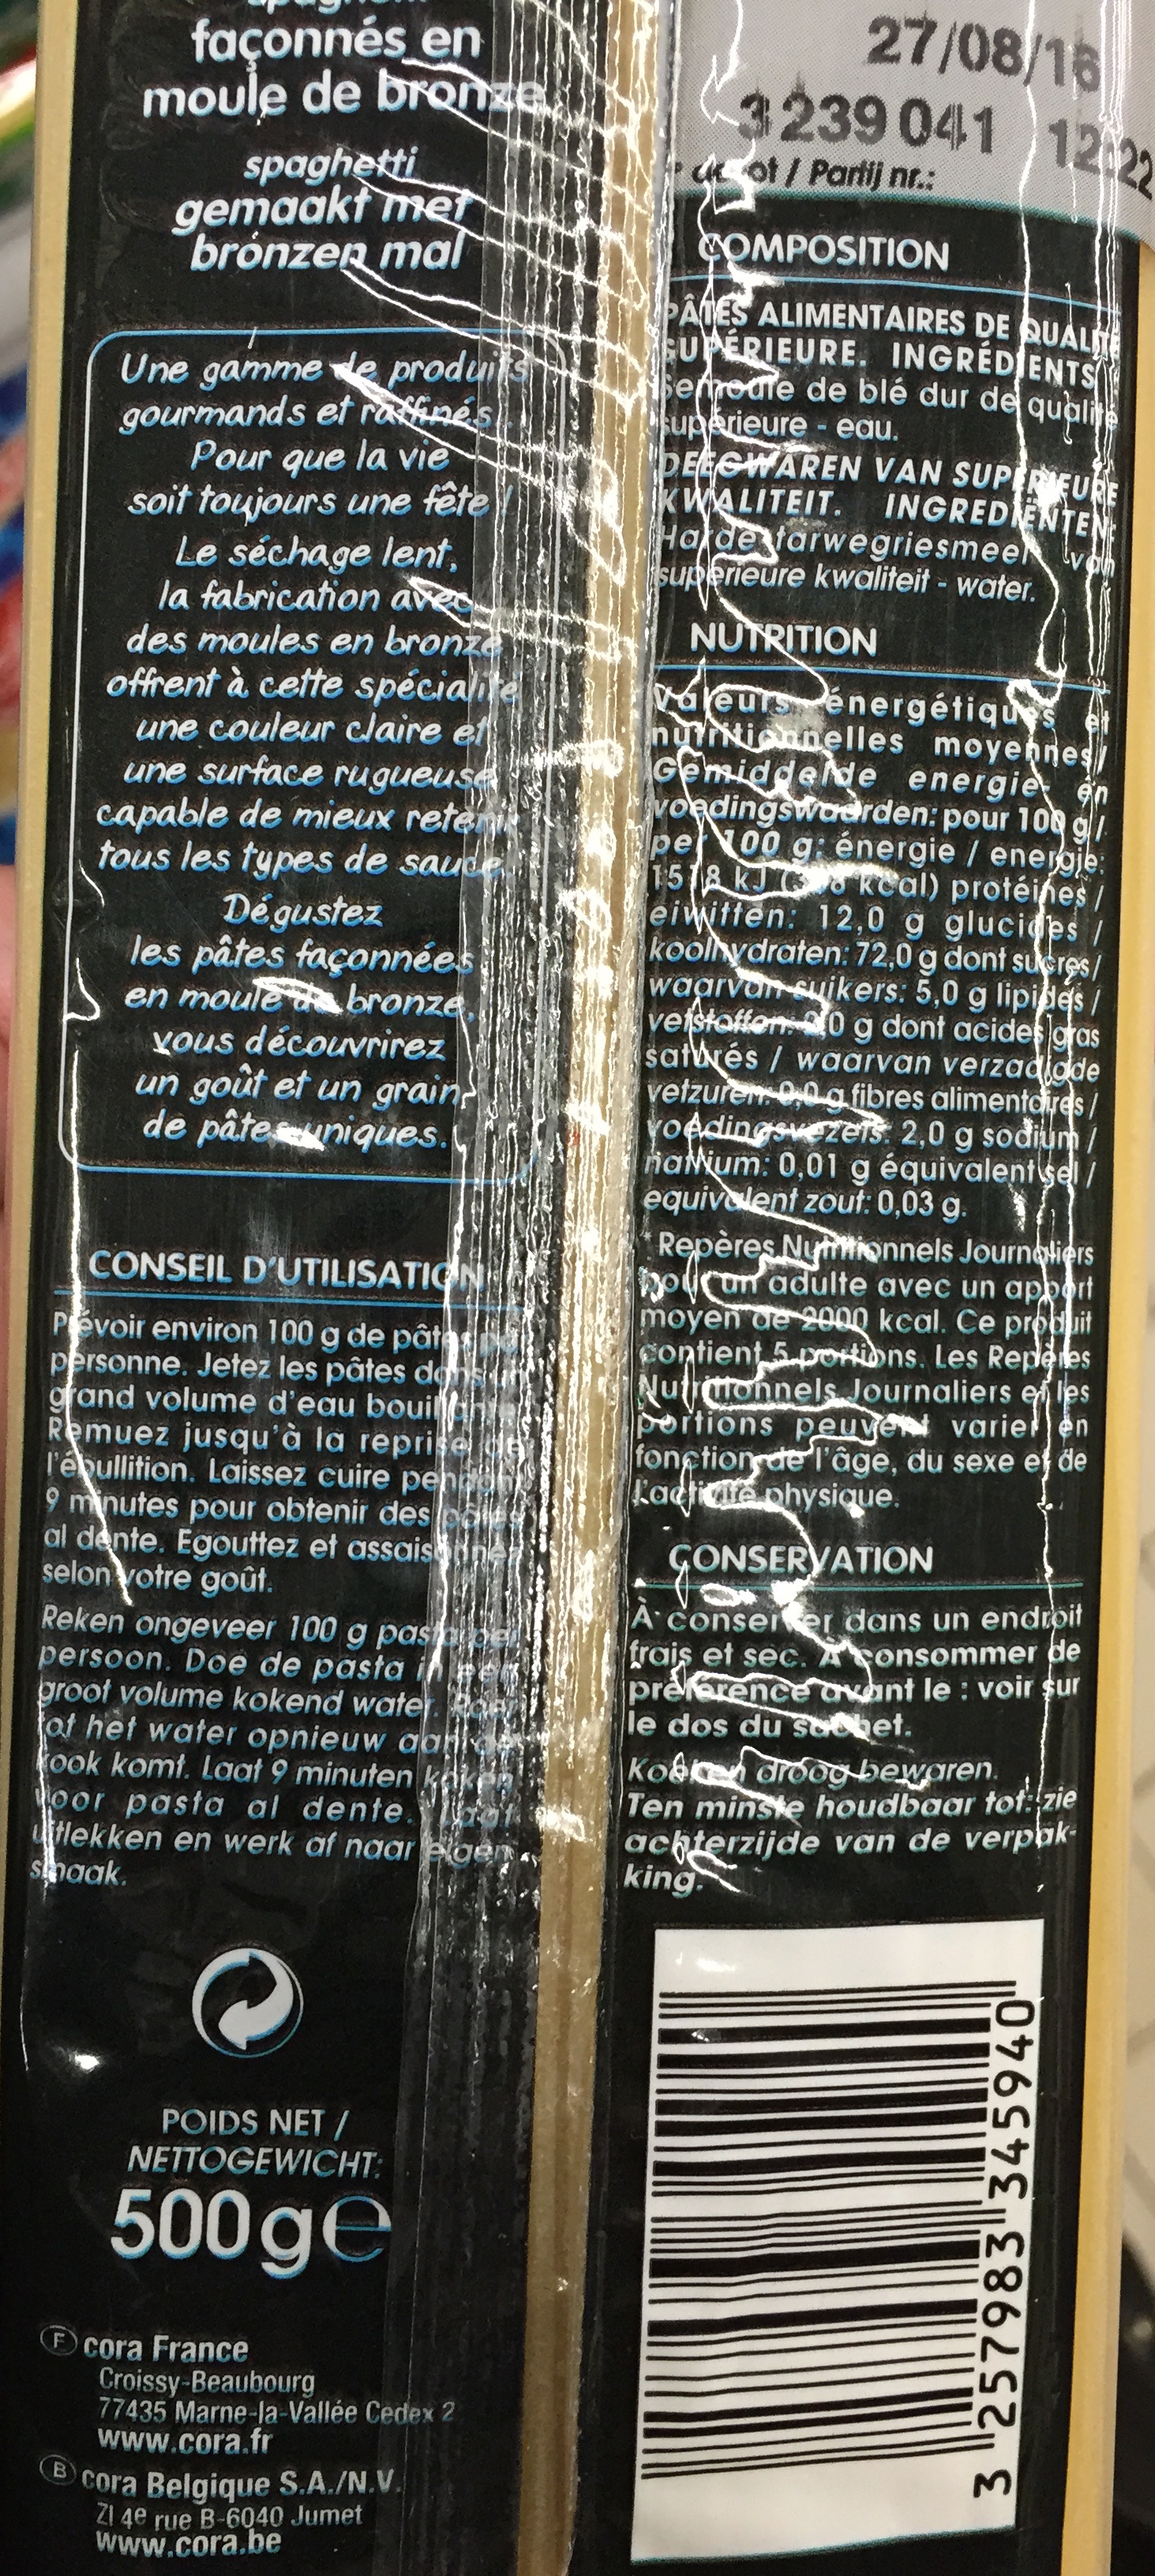 façonnés en
moule de bronze
spaghetti
gemaakt met
bronzen mal
Une gamme de produits
gourmands et raffinés.
Pour que la vie
soit toujours une fête !
Le séchage lent,
la fabrication avec
des moules en bronze
offrent à cette spécialité
une couleur claire et
une surface rugueuse
capable de mieux retenir
tous les types de sauce.
Dégustez
les pâtes façonnées
en moule de bronze,
vous découvrirez
un goût et un grain
de pâtes uniques.
CONSEIL D'UTILISATION
Prévoir environ 100 g de pâtes
personne. Jetez les pâtes dans un
grand volume d'eau bouillante
Remuez jusqu'à la reprise de
l'ébullition. Laissez cuire pendant
9 minutes pour obtenir des pâtes
al dente. Egouttez et assaisonnez
selon votre goût.
Reken ongeveer 100 g pasta per
persoon. Doe de pasta in een
groot volume kokend water. Roer
tot het water opnieuw aan de
kook komt. Laat 9 minuten koken
voor pasta al dente. Laat
uitlekken en werk af naar eigen
smaak.
POIDS NET /
NETTOGEWICHT:
500 g e
F cora France
Croissy-Beaubourg
77435 Marne-la-Vallée Cedex 2
www.cora.fr
B cora Belgique S.A./N.V.
ZI 4e rue B-6040 Jumet
www.cora.be
27/08/16
3239041 12:22
/ Partij nr.:
COMPOSITION
PÂTES ALIMENTAIRES DE QUALITÉ
SUPÉRIEURE. INGRÉDIENTS
Semoule de blé dur de qualité
supérieure - eau.
DEEGWAREN VAN SUPERIEURE
KWALITEIT. INGREDIËNTEN:
Harde tarwegriesmeel van
superieure kwaliteit - water.
NUTRITION
Valeurs énergétiques et
nutritionnelles moyennes/
Gemiddelde energie- en
voedingswaarden: pour 100 g /
per 100 g: énergie / energie:
1518 kJ ( kcal) protéines /
eiwitten: 12,0 g glucides /
koolhydraten: 72,0 g dont sucres /
waarvan suikers: 5,0 g lipides /
vetstoffen: 2,0 g dont acides gras
saturés / waarvan verzadigde
vetzuren: 0,0 g fibres alimentaires /
voedingsvezels: 2,0 g sodium /
natrium: 0,01 g équivalent sel /
equivalent zout: 0,03 g.
* Repères Nutritionnels Journaliers
pour un adulte avec un apport
moyen de 2000 kcal. Ce produit
contient 5 portions. Les Repères
Nutritionnels Journaliers et les
portions peuvent varier en
fonction de l'âge, du sexe et de
l'activité physique.
CONSERVATION
À conserver dans un endroit
frais et sec. A consommer de
préférence avant le : voir sur
le dos du sachet.
Koel en droog bewaren.
Ten minste houdbaar tot: zie
achterzijde van de verpak-
king.
3 257983 345940